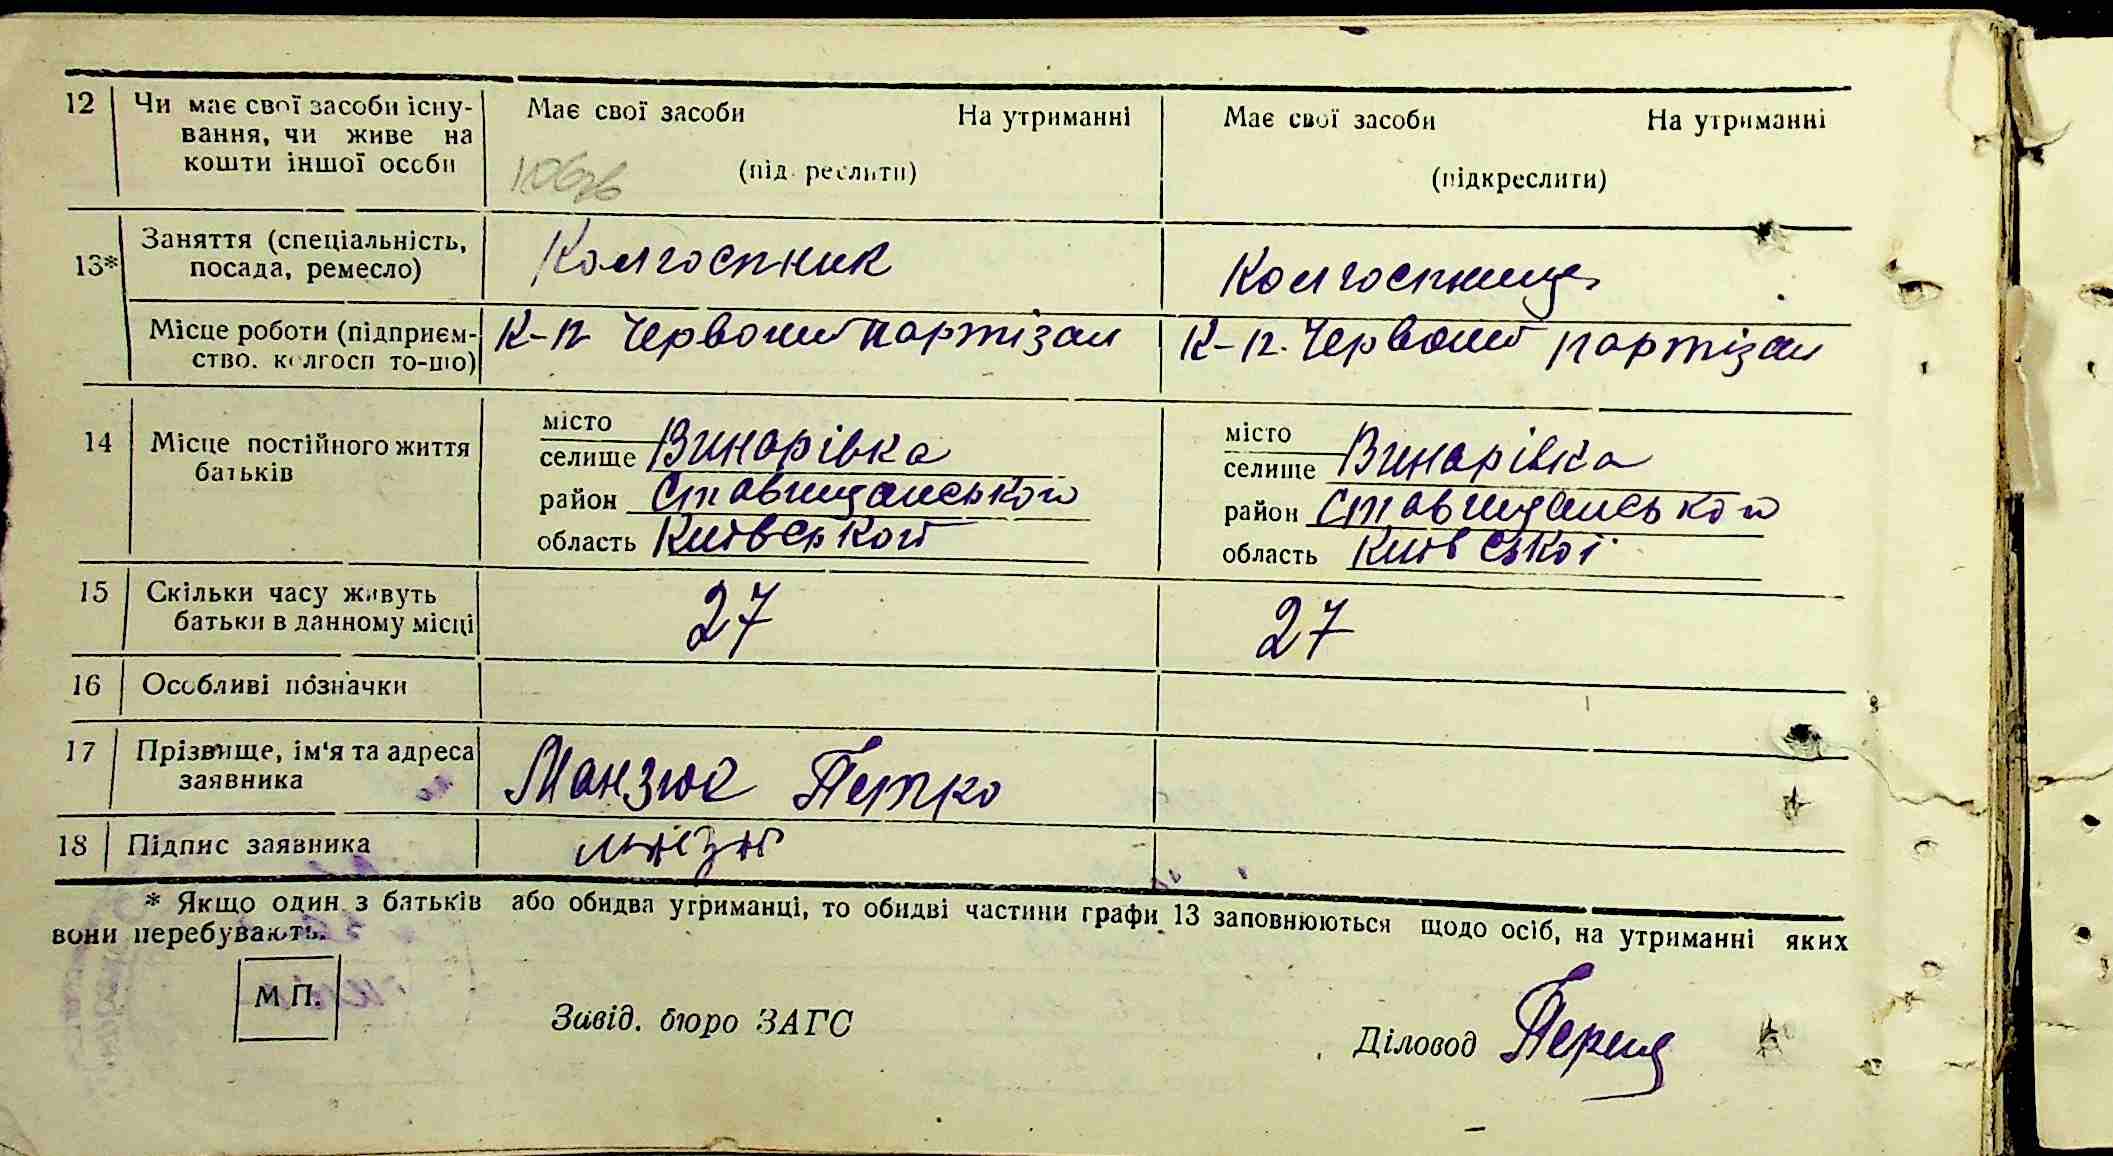 12 Чи має свої засоби існу- Має свої засоби На утриманні Має свої засоби На утриманні
вання, чи живе на
кошти іншої особи (підкреслити) (підкреслити)
13* Заняття (спеціальність, Колгоспник Колгоспниця
посада, ремесло)
Місце роботи (підприєм- К-п Червоний партізан К-п. Червоний партізан
ство. колгосп то-що)
14 Місце постійного життя місто місто
батьків селище Винарівка селище Винарівка
район Ставищанського район Ставищанського
область Київської область Київської
15 Скільки часу живуть 27 27
батьки в данному місці
16 Особливі позначки
17 Прізвище, ім'я та адреса Манзюк Петро
заявника
18 Підпис заявника
* Якщо один з батьків або обидва утриманці, то обидві частини графи 13 заповнюються щодо осіб, на утриманні яких
вони перебувають.
М П.
Завід. бюро ЗАГС Діловод